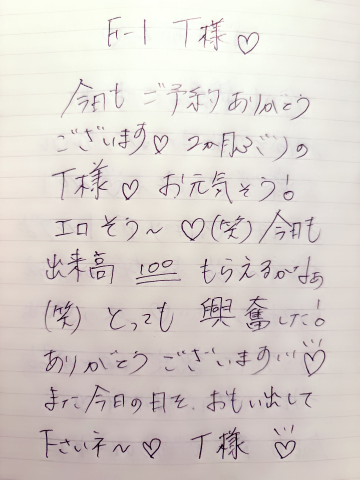 F-1 T様♡
今日も ご予約ありがとう
ございます♡ 2か月ぶりの
T様♡ お元気そう!
エロそう〜♡(笑)今日も
出来高 100 もらえるかなぁ
(笑) とっても 興奮した!
ありがとう ございます…♡
また今日の日を、おもい出して
下さいネ〜♡ T様♡